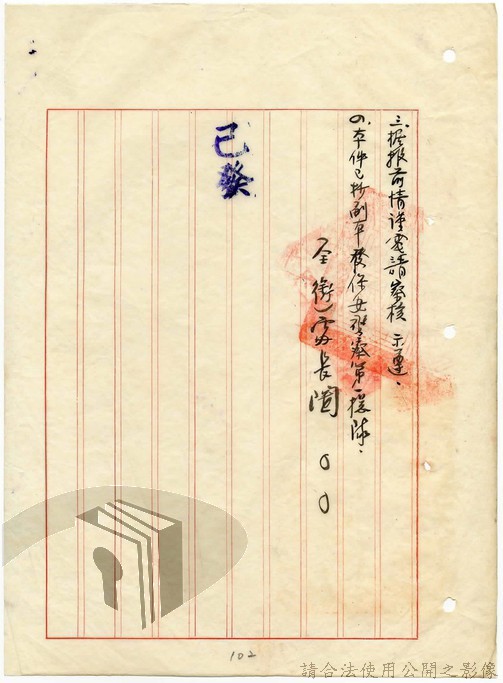 三、據報前情謹電請察核示遵、
四、本件已抄副本發保安警察第一總隊、
全銜處長閻〇〇
已發
102
請合法使用公開之影像